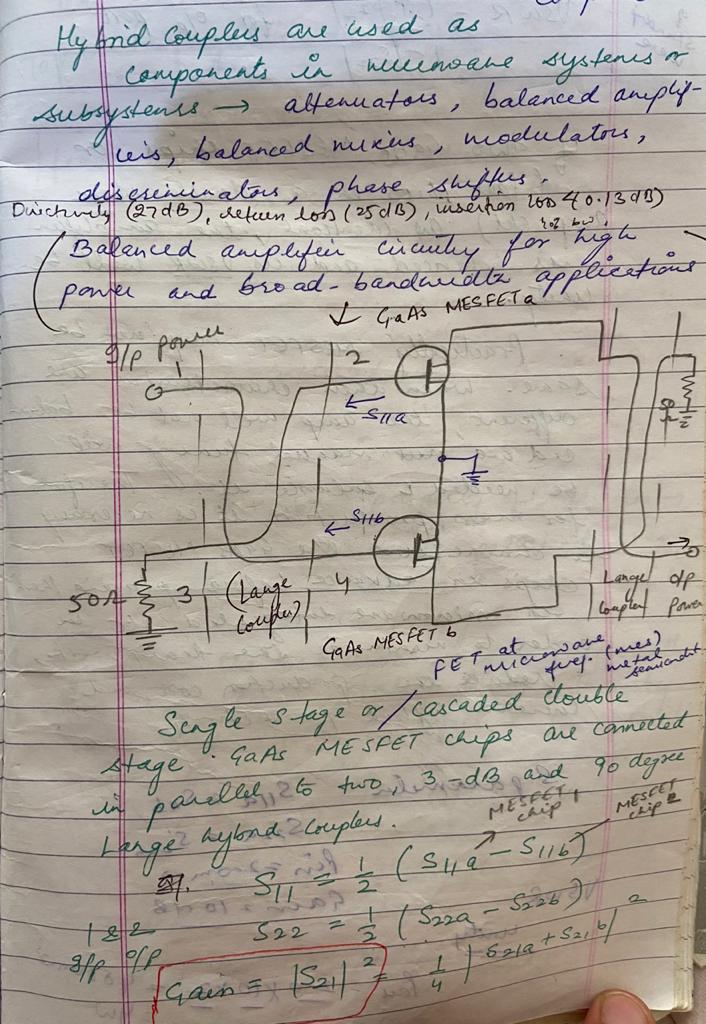 Hybrid Couplers are used as
components in microwave systems or
subsystems → attenuators, balanced amplif-
iers, balanced mixers, modulators,
discriminators, phase shifters.
Directivity (27dB), return loss (25dB), insertion loss < 0.13dB)
Balanced amplifier circuitry for high
power and broad-bandwidth applications
GaAs MESFET a
I/p power
1
2
S11a
50Ω
S11b
50Ω
3
(Lange
Coupler)
4
Lange
Coupler
o/p
Power
GaAs MESFET b
FET at
microwave
freq. (mes)
metal
semicondt
Single stage or / cascaded double
stage GaAs MESFET chips are connected
in parallel to two 3-dB and 90 degree
Lange hybrid couplers.
MESFET
chip 1
MESFET
chip 2
S11 = 1/2 (S11a - S11b)
1 & 2
I/p o/p
S22 = 1/2 (S22a - S22b)
Gain = |S21|² = 1/4 |S21a + S21b|²